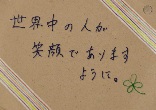 世界中の人が
笑顔であります
ように。